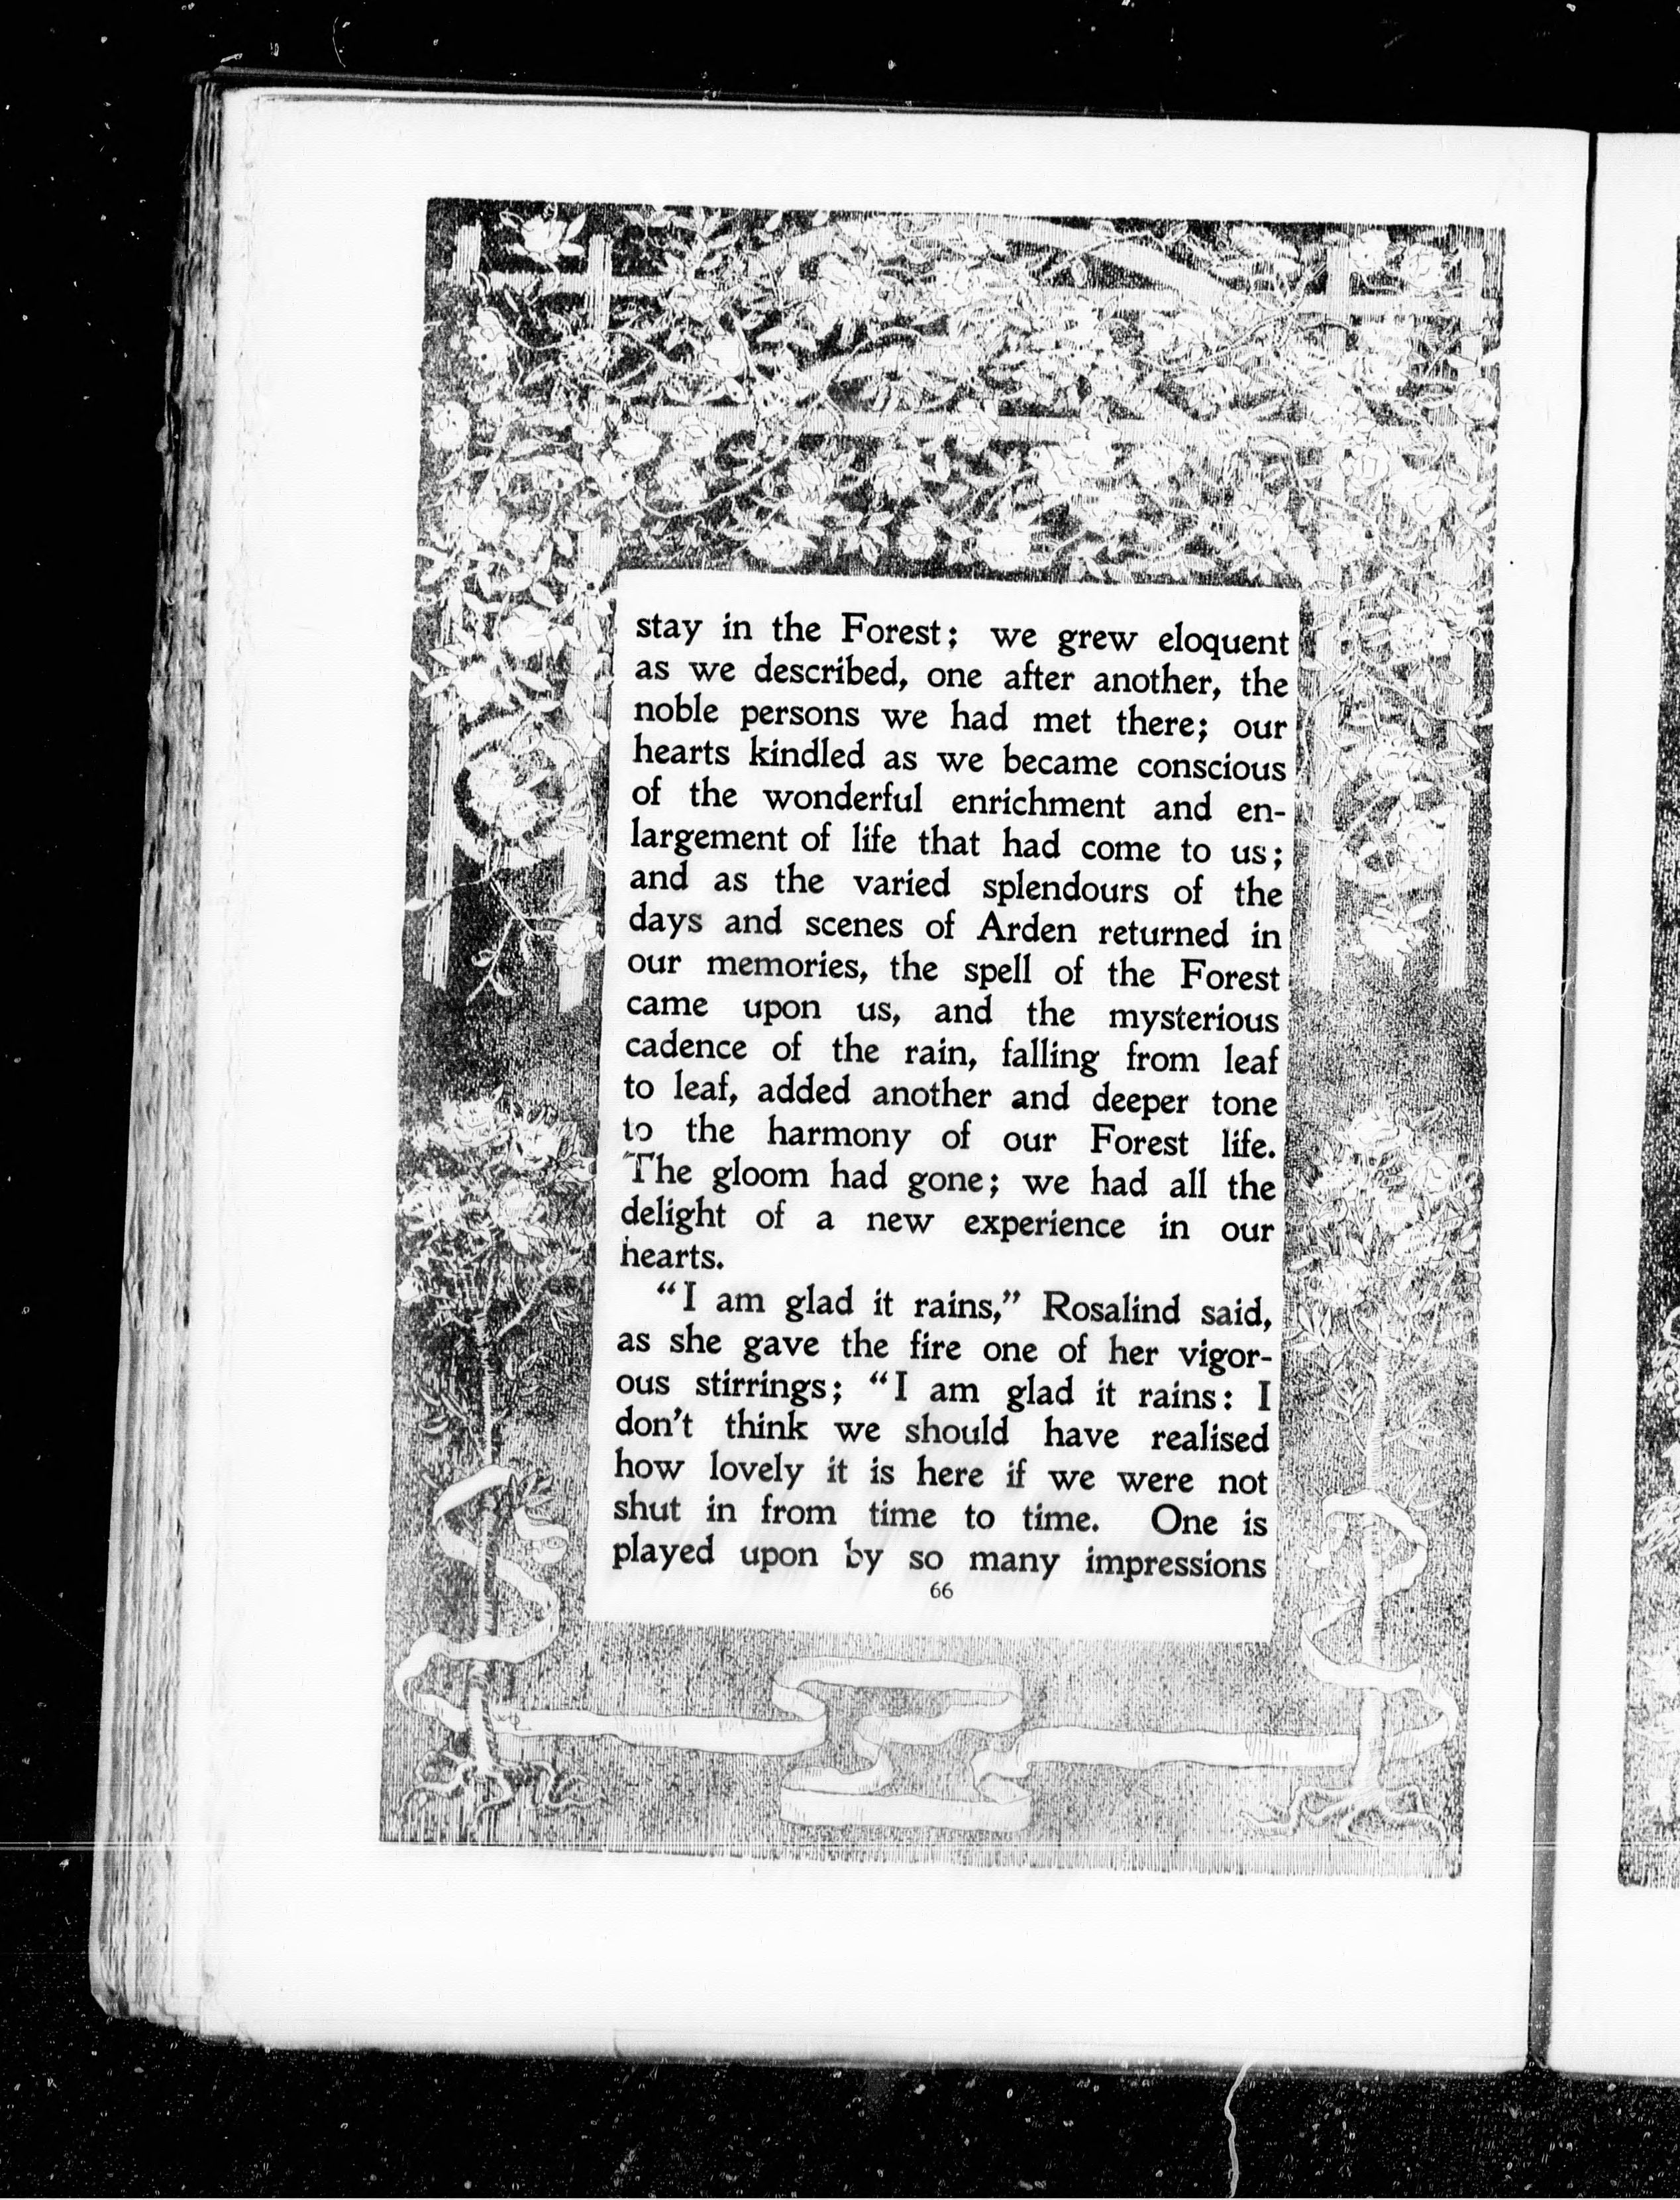 stay in the Forest; we grew eloquent
as we described, one after another, the
noble persons we had met there; our
hearts kindled as we became conscious
of the wonderful enrichment and en-
largement of life that had come to us;
and as the varied splendours of the
days and scenes of Arden returned in
our memories, the spell of the Forest
came upon us, and the mysterious
cadence of the rain, falling from leaf
to leaf, added another and deeper tone
to the harmony of our Forest life.
The gloom had gone; we had all the
delight of a new experience in our
hearts.
"I am glad it rains," Rosalind said,
as she gave the fire one of her vigor-
ous stirrings; "I am glad it rains: I
don't think we should have realised
how lovely it is here if we were not
shut in from time to time. One is
played upon by so many impressions
66